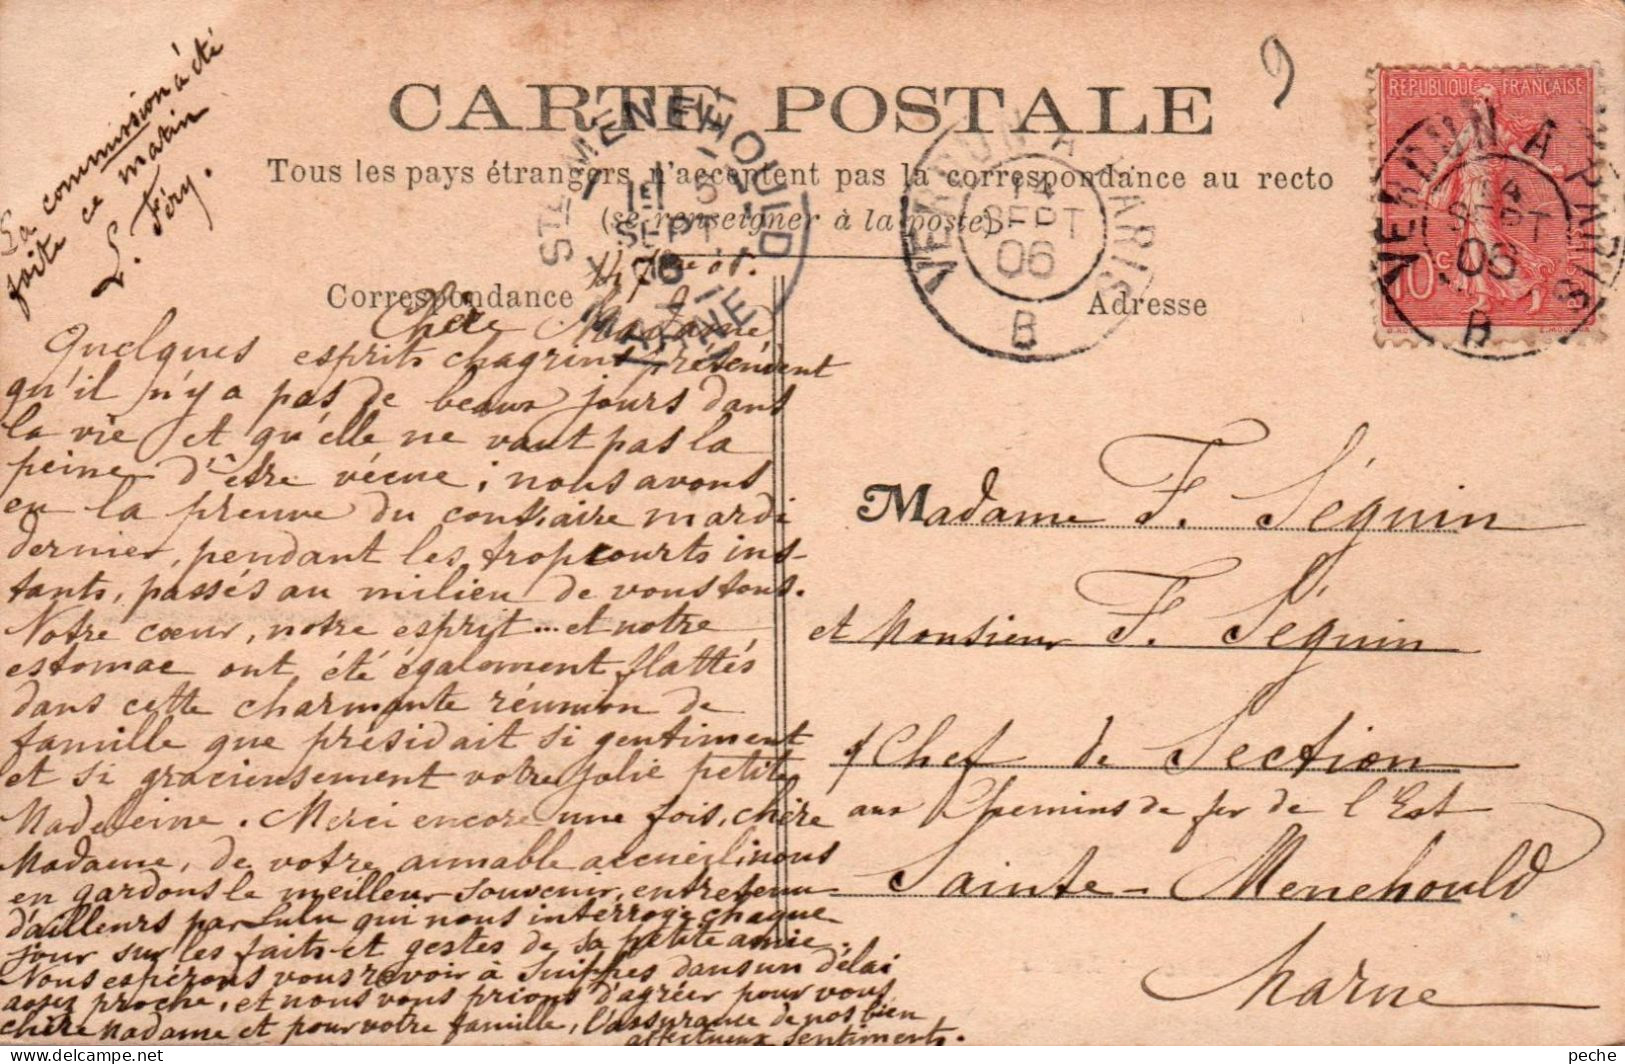 La commission a été
faite ce matin
L. Féry.
9
CARTE POSTALE
Tous les pays étrangers n'acceptent pas la correspondance au recto
(se renseigner à la poste)
Correspondance
Adresse
REPUBLIQUE FRANÇAISE
10 c
VERDUN A PARIS
14
SEPT
06
B
VERDUN A PARIS
14
SEPT
06
B
STE MENEHOULD
SEPT
06
MARNE
14 7bre 06.
Chère Madame
Quelques esprits chagrins prétendent
qu'il n'y a pas de beaux jours dans
la vie et qu'elle ne vaut pas la
peine d'être vécue ; nous avons
eu la preuve du contraire mardi
dernier, pendant les trop courts ins-
tants, passés au milieu de vous tous.
Notre cœur, notre esprit... et notre
estomac ont été également flattés
dans cette charmante réunion de
famille que présidait si gentiment
et si gracieusement votre jolie petite
Madeleine. Merci encore une fois, chère
Madame, de votre aimable accueil, nous
en gardons le meilleur souvenir, entretenu
d'ailleurs par Lulu qui nous interroge chaque
jour sur les faits et gestes de sa petite amie.
Nous espérons vous revoir à Suippes dans un délai
assez proche, et nous vous prions d'agréer pour vous
chère Madame et pour votre famille, l'assurance de nos bien
affectueux sentiments.
Madame F. Séguin
et Monsieur F. Séguin
s/Chef de Section
aux Chemins de fer de l'Est
Sainte-Menehould
Marne
peche